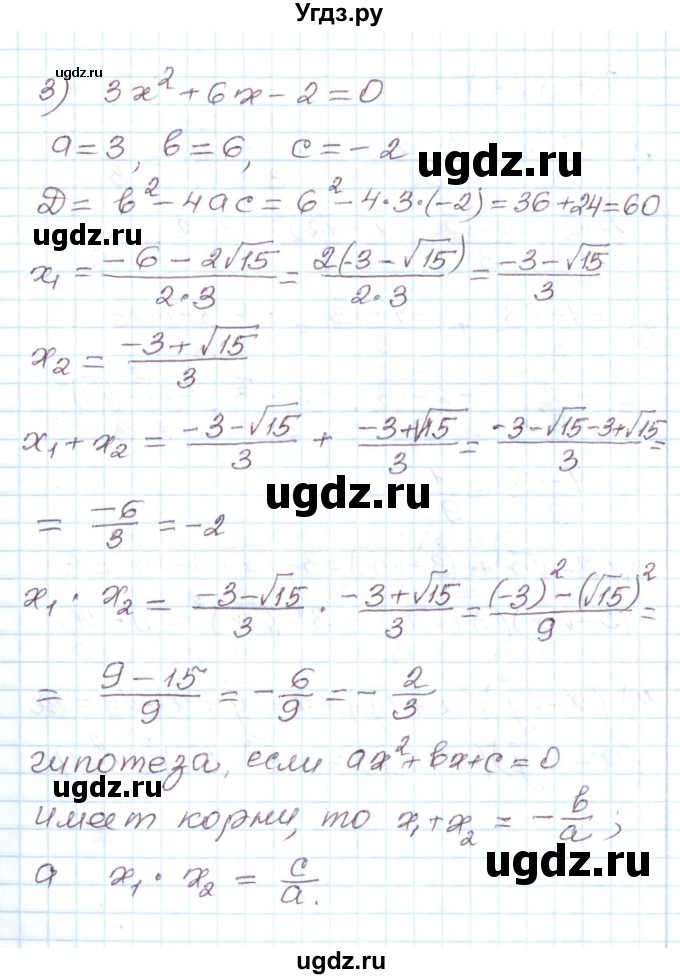 Угдз.ру
ugdz.ru
3) 3x² + 6x - 2 = 0
a = 3, b = 6, c = - 2
ugdz.ru
D = b² - 4ac = 6² - 4·3·(-2) = 36 + 24 = 60
ugdz.ru
x₁ = (-6 - 2√15)/(2·3) = 2(-3 - √15)/(2·3) = (-3 - √15)/3
x₂ = (-3 + √15)/3
x₁ + x₂ = (-3 - √15)/3 + (-3 + √15)/3 = (-3 - √15 - 3 + √15)/3 =
ugdz.ru
= -6/3 = -2
x₁ · x₂ = (-3 - √15)/3 · (-3 + √15)/3 = ((-3)² - (√15)²)/9 =
= (9 - 15)/9 = - 6/9 = - 2/3
гипотеза, если ax² + bx + c = 0
ugdz.ru
имеет корни, то x₁ + x₂ = - b/a;
ugdz.ru
а x₁ · x₂ = c/a.
ugdz.ru